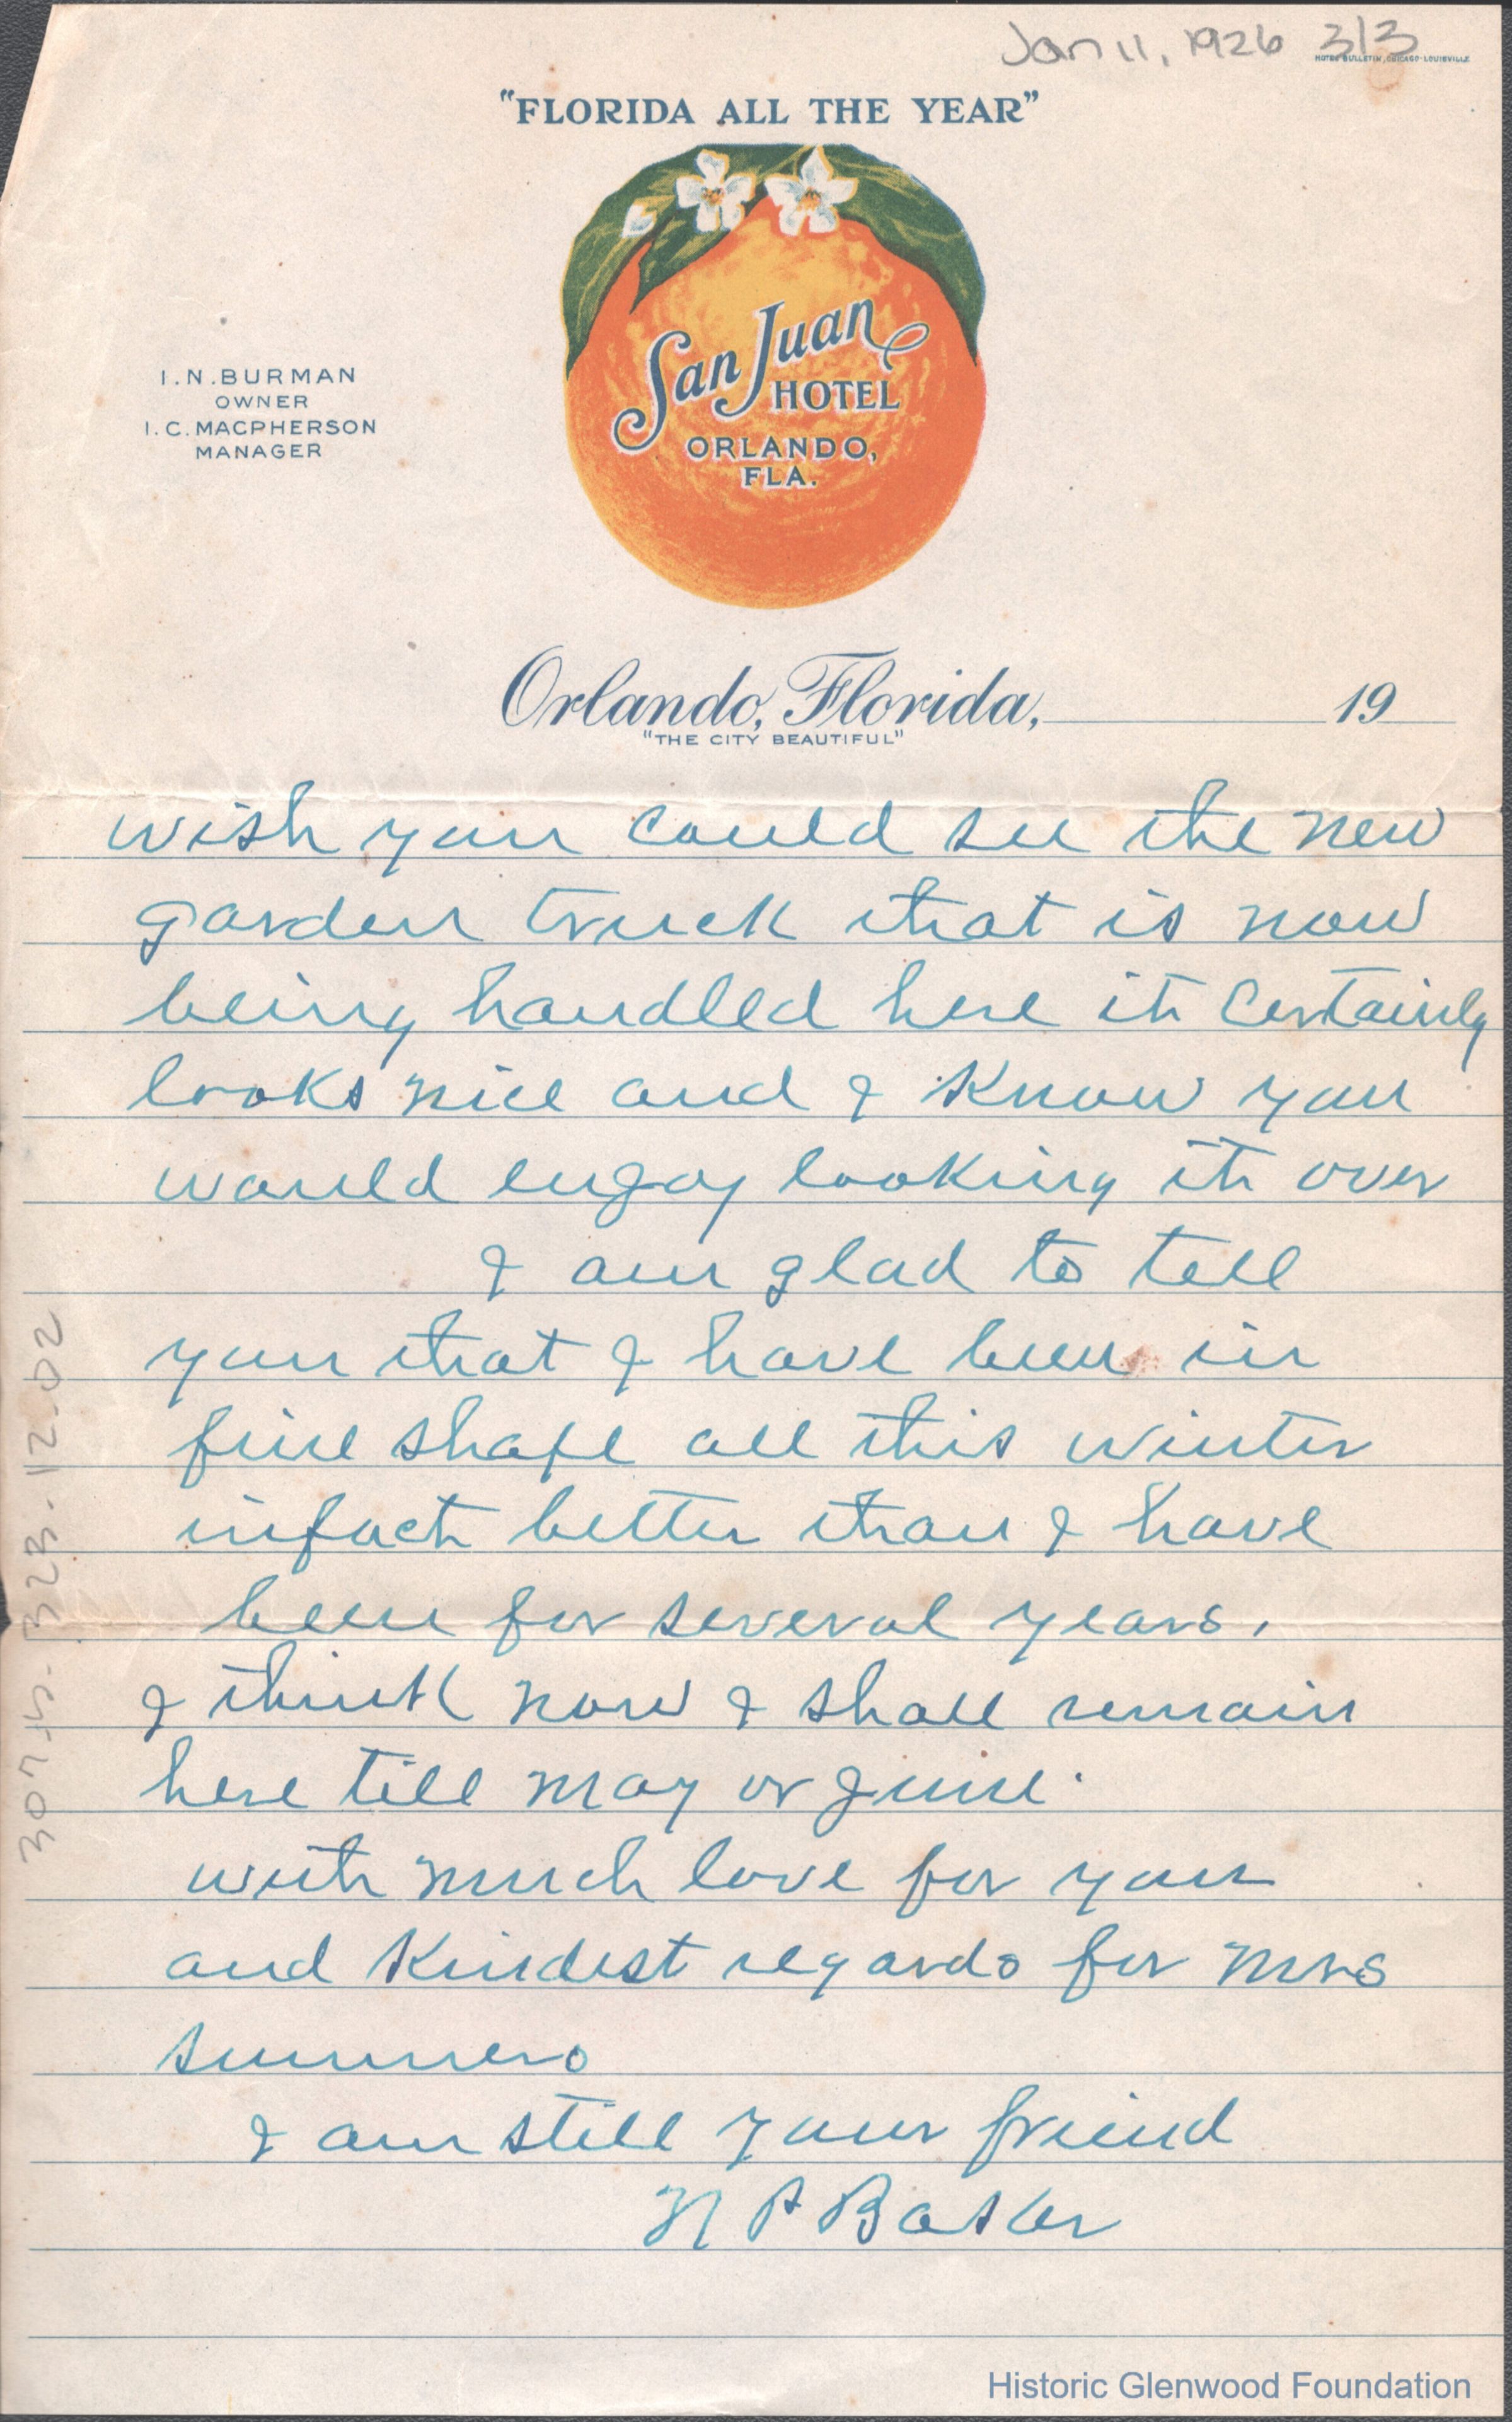 Jan 11, 1926 3/3
HOTEL BULLETIN, CHICAGO-LOUISVILLE
"FLORIDA ALL THE YEAR"
San Juan
HOTEL
ORLANDO,
FLA.
I.N.BURMAN
OWNER
I.C.MACPHERSON
MANAGER
Orlando, Florida, 19
"THE CITY BEAUTIFUL"
wish you could see the new
garden truck that is now
being handled here it certainly
looks nice and I know you
would enjoy looking it over
I am glad to tell
you that I have been in
fine shape all this winter
infact better than I have
been for several years.
I think now I shall remain
here till may or June.
with much love for you
and Kindest regards for Mrs
Summers
I am still your friend
Historic Glenwood Foundation